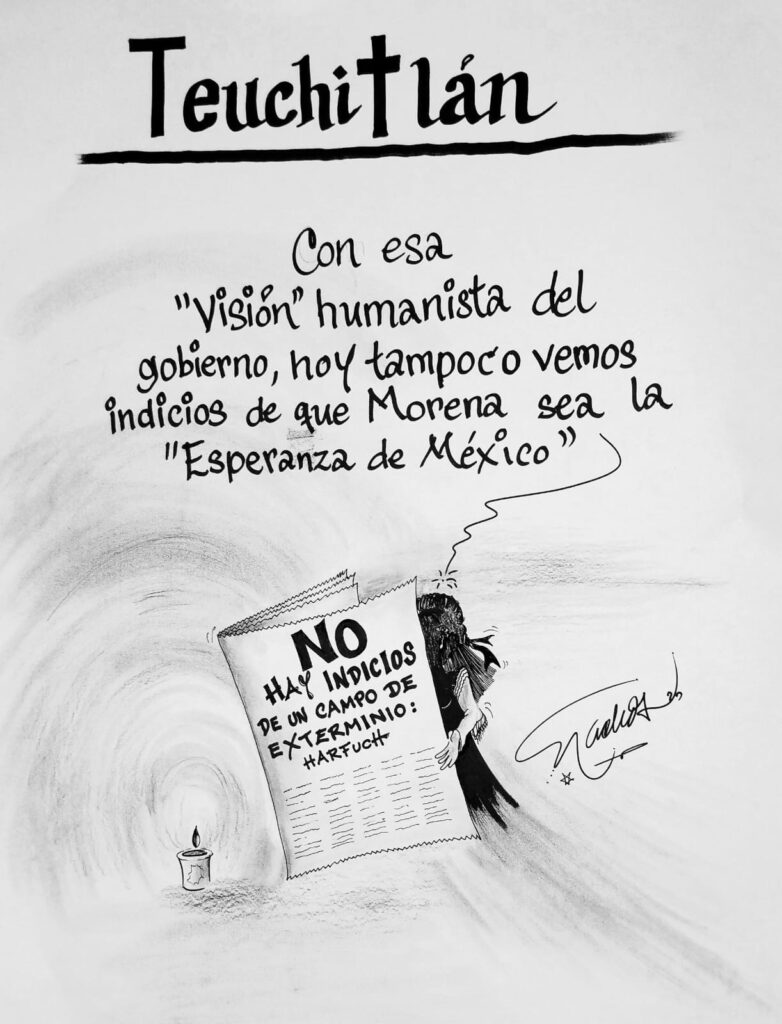 Teuchitlán
Con esa
"Visión" humanista del
gobierno, hoy tampoco vemos
indicios de que Morena sea la
"Esperanza de México"
NO
HAY INDICIOS
DE UN CAMPO DE
EXTERMINIO:
HARFUCH